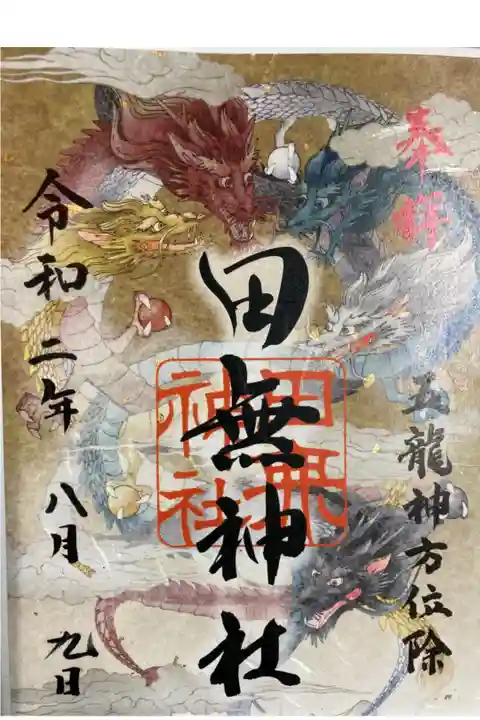 奉拝
五龍神方位除
田無神社
田無神社
令和二年 八月 九日